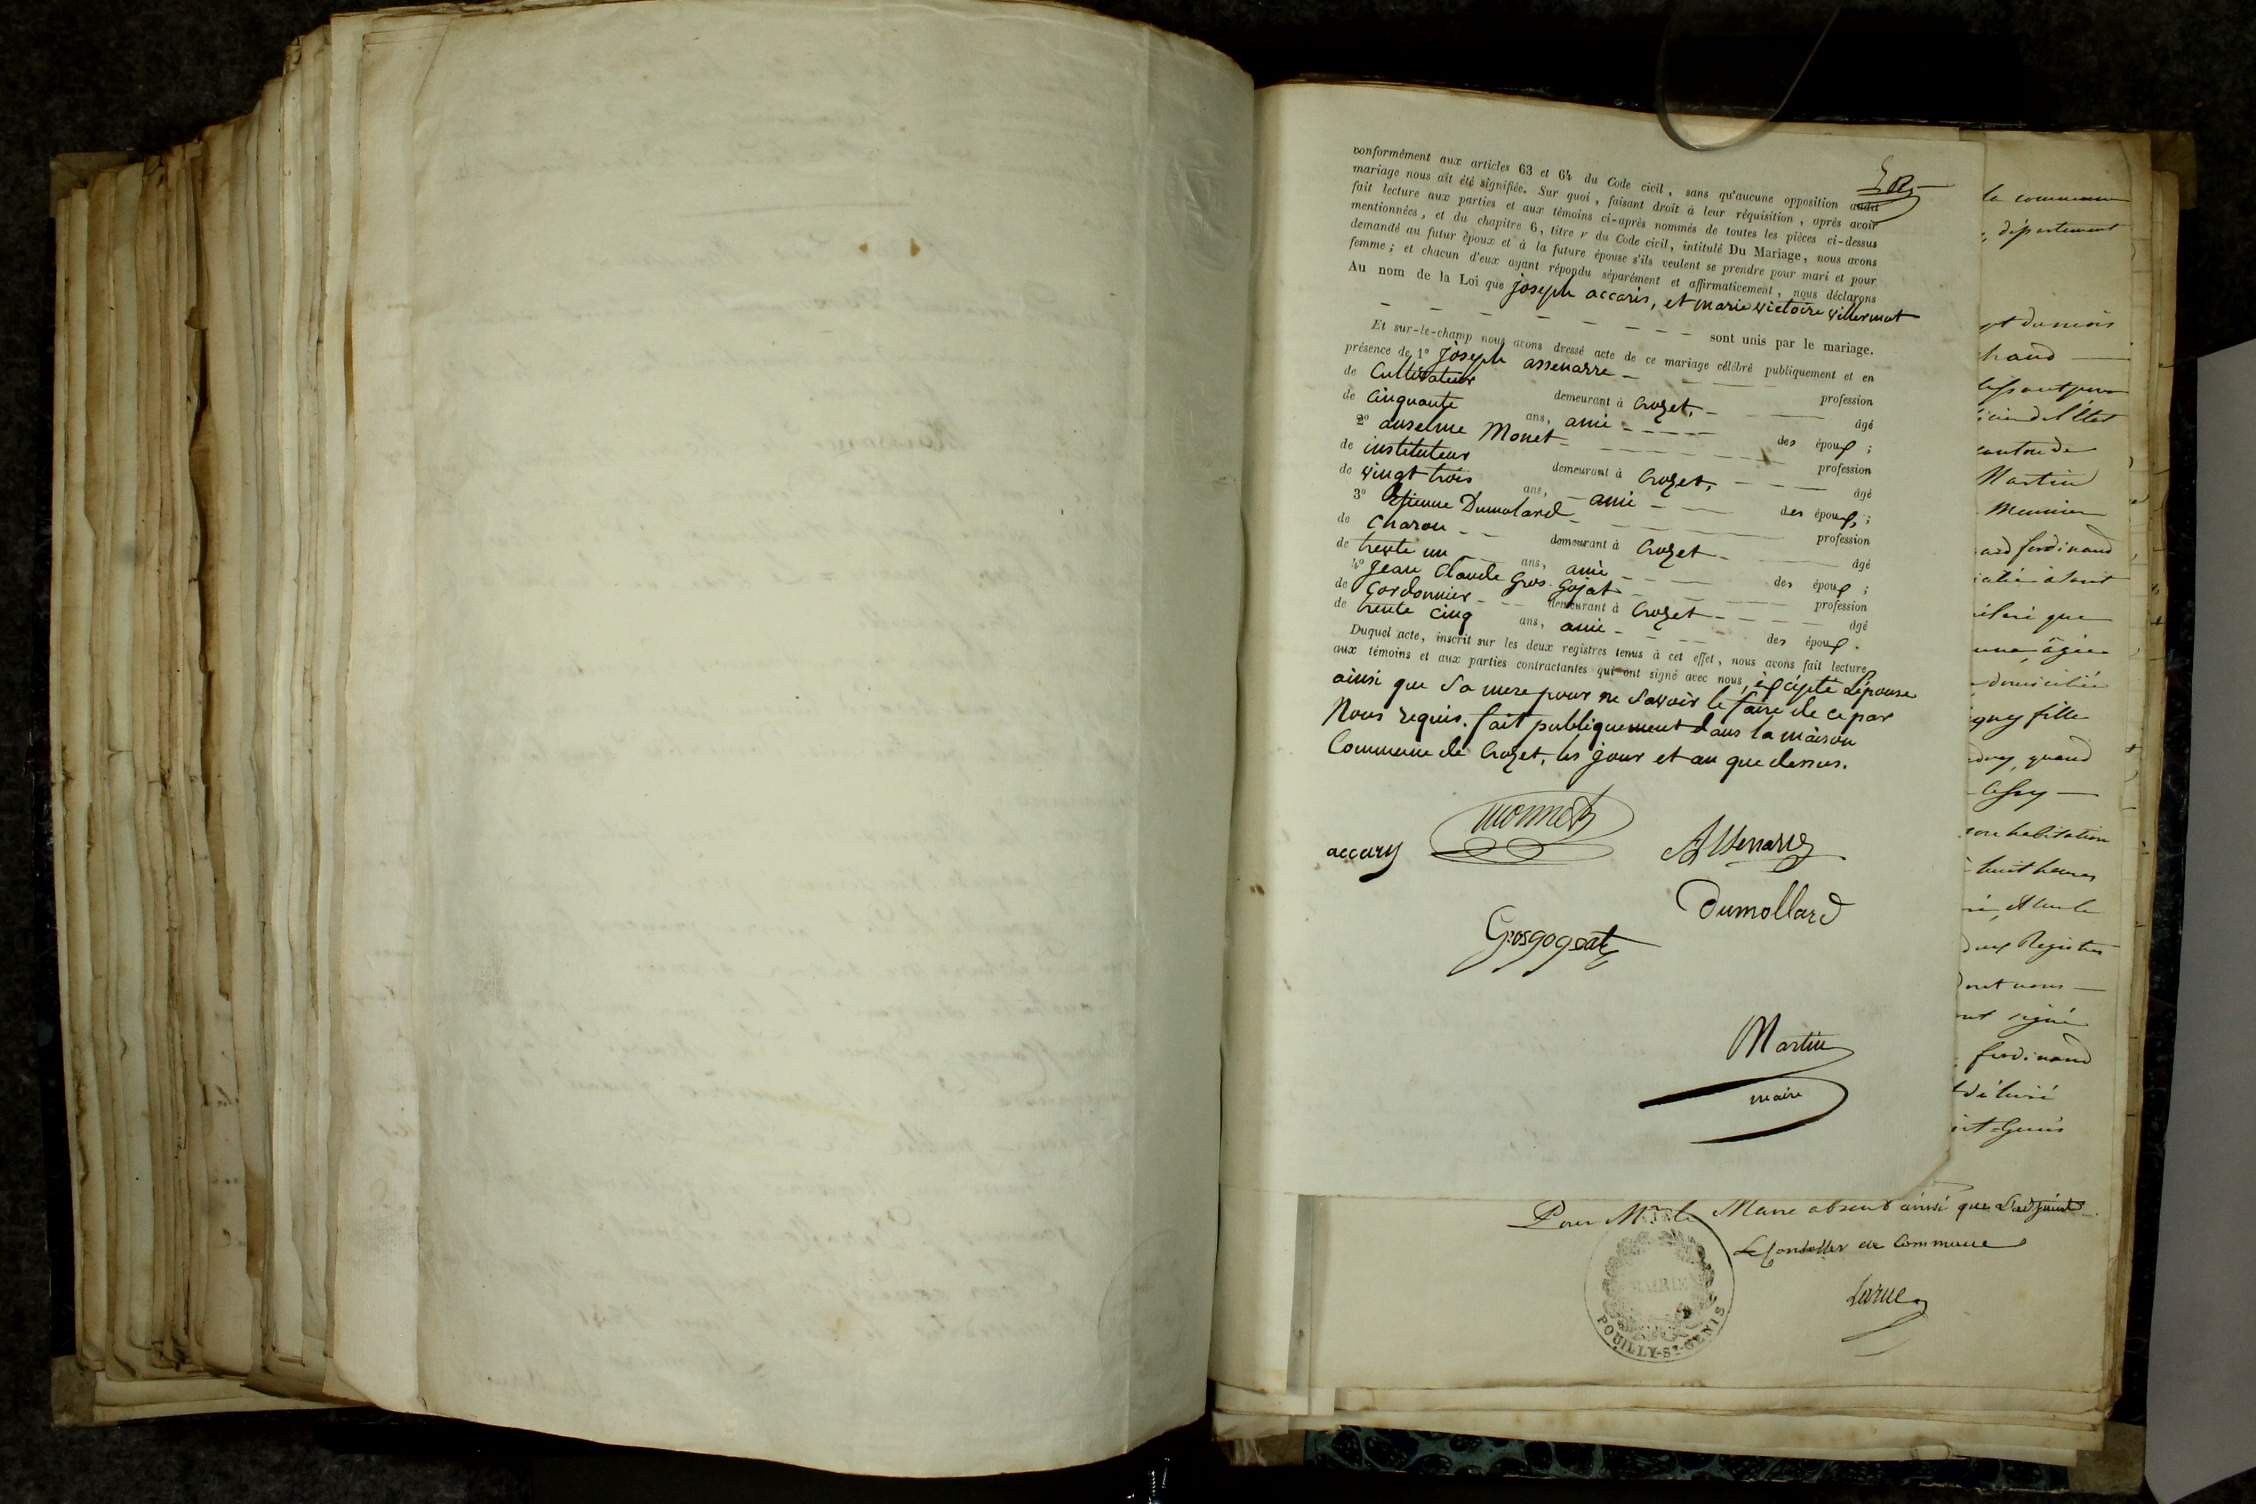 conformément aux articles 63 et 64 du Code civil, sans qu'aucune opposition audit
mariage nous ait été signifiée. Sur quoi, faisant droit à leur réquisition, après avoir
fait lecture aux parties et aux témoins ci-après nommés de toutes les pièces ci-dessus
mentionnées, et du chapitre 6, titre v du Code civil, intitulé Du Mariage, nous avons
demandé au futur époux et à la future épouse s'ils veulent se prendre pour mari et pour
femme ; et chacun d'eux ayant répondu séparément et affirmativement, nous déclarons
Au nom de la Loi que joseph accaris, et marie victoire villermot
sont unis par le mariage.
Et sur-le-champ nous avons dressé acte de ce mariage célébré publiquement et en
présence de 1° joseph assenarre profession
de Cultivateur demeurant à Crozet, âgé
de cinquante ans, ami des époux ;
2° anselme Monet profession
de instituteur demeurant à Crozet, âgé
de vingt trois ans, ami des époux ;
3° Etienne Dumolard profession
de Charon demeurant à Crozet âgé
de trente un ans, ami des époux ;
4° Jean Claude Gros Gojat profession
de Cordonnier demeurant à Crozet âgé
de trente cinq ans, ami des époux.
Duquel acte, inscrit sur les deux registres tenus à cet effet, nous avons fait lecture
aux témoins et aux parties contractantes qui ont signé avec nous, excépté L'épouse
ainsi que sa mere pour ne savoir le faire de ce par
Nous requis. fait publiquement dans la maison
Commune de Crozet, les jour et an que dessus.
monnet
accary
Assenarre
Dumollard
Grosgogeat
Martin
maire
la commune
département
du mois
canton de
Martin
Meunier
ferdinand
que
âgée
domiciliée
fille
quand
Cessy
son habitation
huit heures
Registres
signé
ferdinand
délivré
Pour Mr le Maire absent ainsi que L'adjoint
Le Conseiller de Commune
Larue
MAIRIE
POUILLY-ST-GENIS